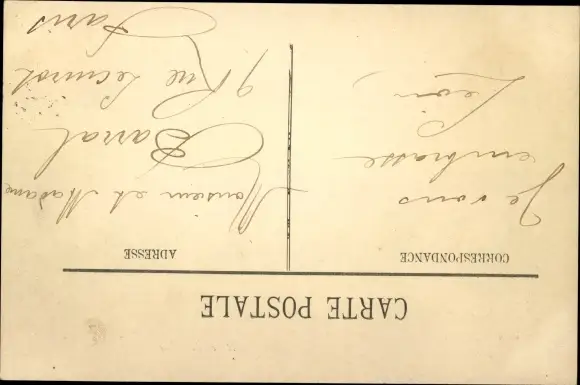 CARTE POSTALE
CORRESPONDANCE
Je vous
embrasse
Léon,
ADRESSE
Monsieur et Madame
Barral
9 Rue Lecuirot
Paris